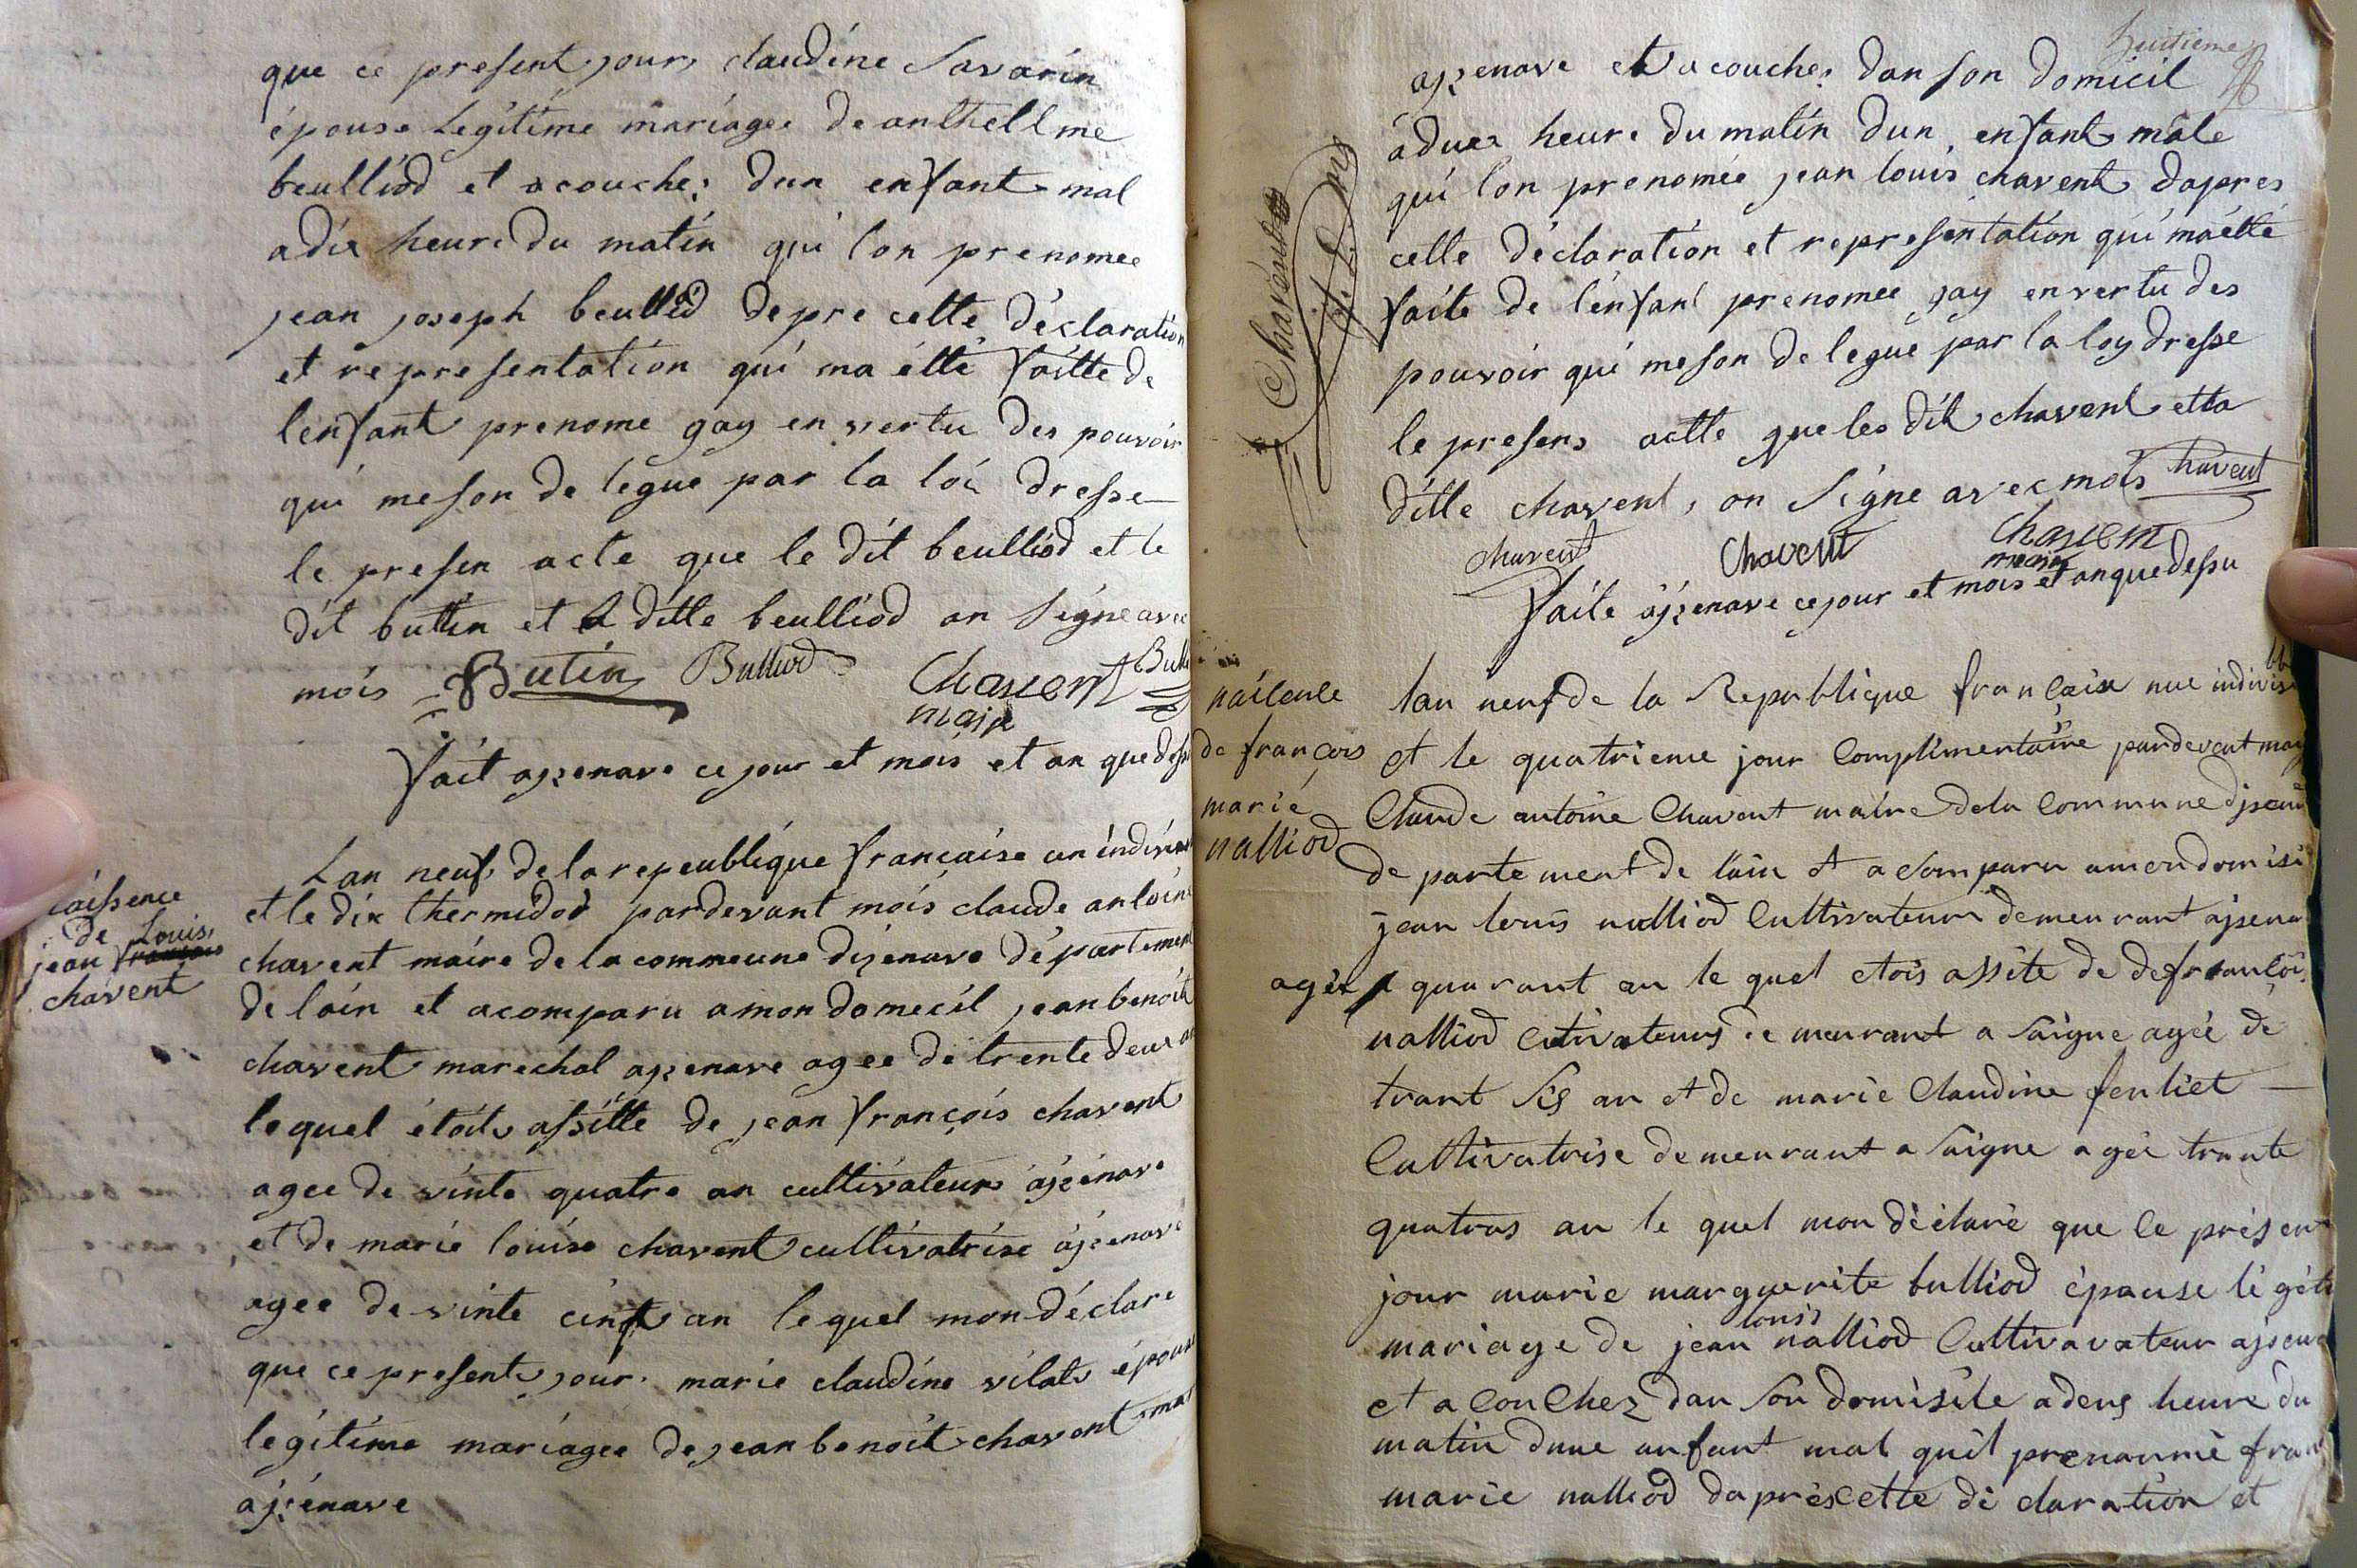 que ce present jour claudine Savarin
épouse Legitime mariagee de anthellme
beulliod et acouche: dun enfant mal
a dix heure du matin qui lon prenomee
jean joseph beulliod depre cette déclaration
et representation qui ma étté faitte de
lenfant prenome gay en vertu des pouvoir
qui me son de legué par la loi dresse
le presen acte que le dit beulliod et le
dit buttin et a ditte beulliod on Signe avec
mois Butin Bulliod Chavent
maire
fait apzenave ce jour et mois et an que dessu
naissence
de Louis
jean françois
chavent
Lan neuf de la repeublique francaise un indivis
et le dix thermidor pardevant mois claude antoine
chavent maire de la commeune dizenave département
de lain et acomparu a mon domecil jean benoit
chavent marechal azenave agee de trente deux an
le quel étoit assitte de jean françois chavent
agee de vinte quatre an cultivateur ajzenave
et de marie louise chavent cultivatrise ajzenave
agee de vinte cinq an le quel mon déclare
que ce present jour marie claudine vilat épouse
legitime mariagee de jean benoit chavent mar
ajzenave
huitieme
azenave et a couche: dan son domicil
a duex heure du matin dun enfant mâle
qui lon prenomée jean louis chavent dapres
cette déclaration et representation qui ma étté
faite de lénfant prenomee gay en vertu des
pouvoir qui me son de legué par la loy dresse
le presens actte que les dit chavent et la
ditte chavent, on Signe avec mois chavent
chavent Chavent Chavent
maire
faite ajzenave ce jour et mois et an que dessu
naicence
de françois
marie
nalliod
lan neuf de la Republique françaix nue indivis
et le quatrieme jour Complimentaire pardevent moy
Claude antoine Chavent maire dela Commune djzenave
de parte ment de lain et a Comparu a mon domisi
jean louis nalliod Cultivateur demeurant ajsena
agée quarant an le quel etois assite de de françois
nalliod Cutivateur de meurant a Saigne agée de
trant Sis an et de marie Claudine fenliet
Cultivatrise demeurant a Saigne agée trante
quatras an le quel mon déclaré que le présen
jour marie marguerite bulliod épause le géti
mariage de jean louis nalliod Cultivavateur ajsena
et a Couchez dan Son domisile a deus heure du
matin dune anfant mal quil prenaumé fran
marie nalliod daprés Cette dé claration et